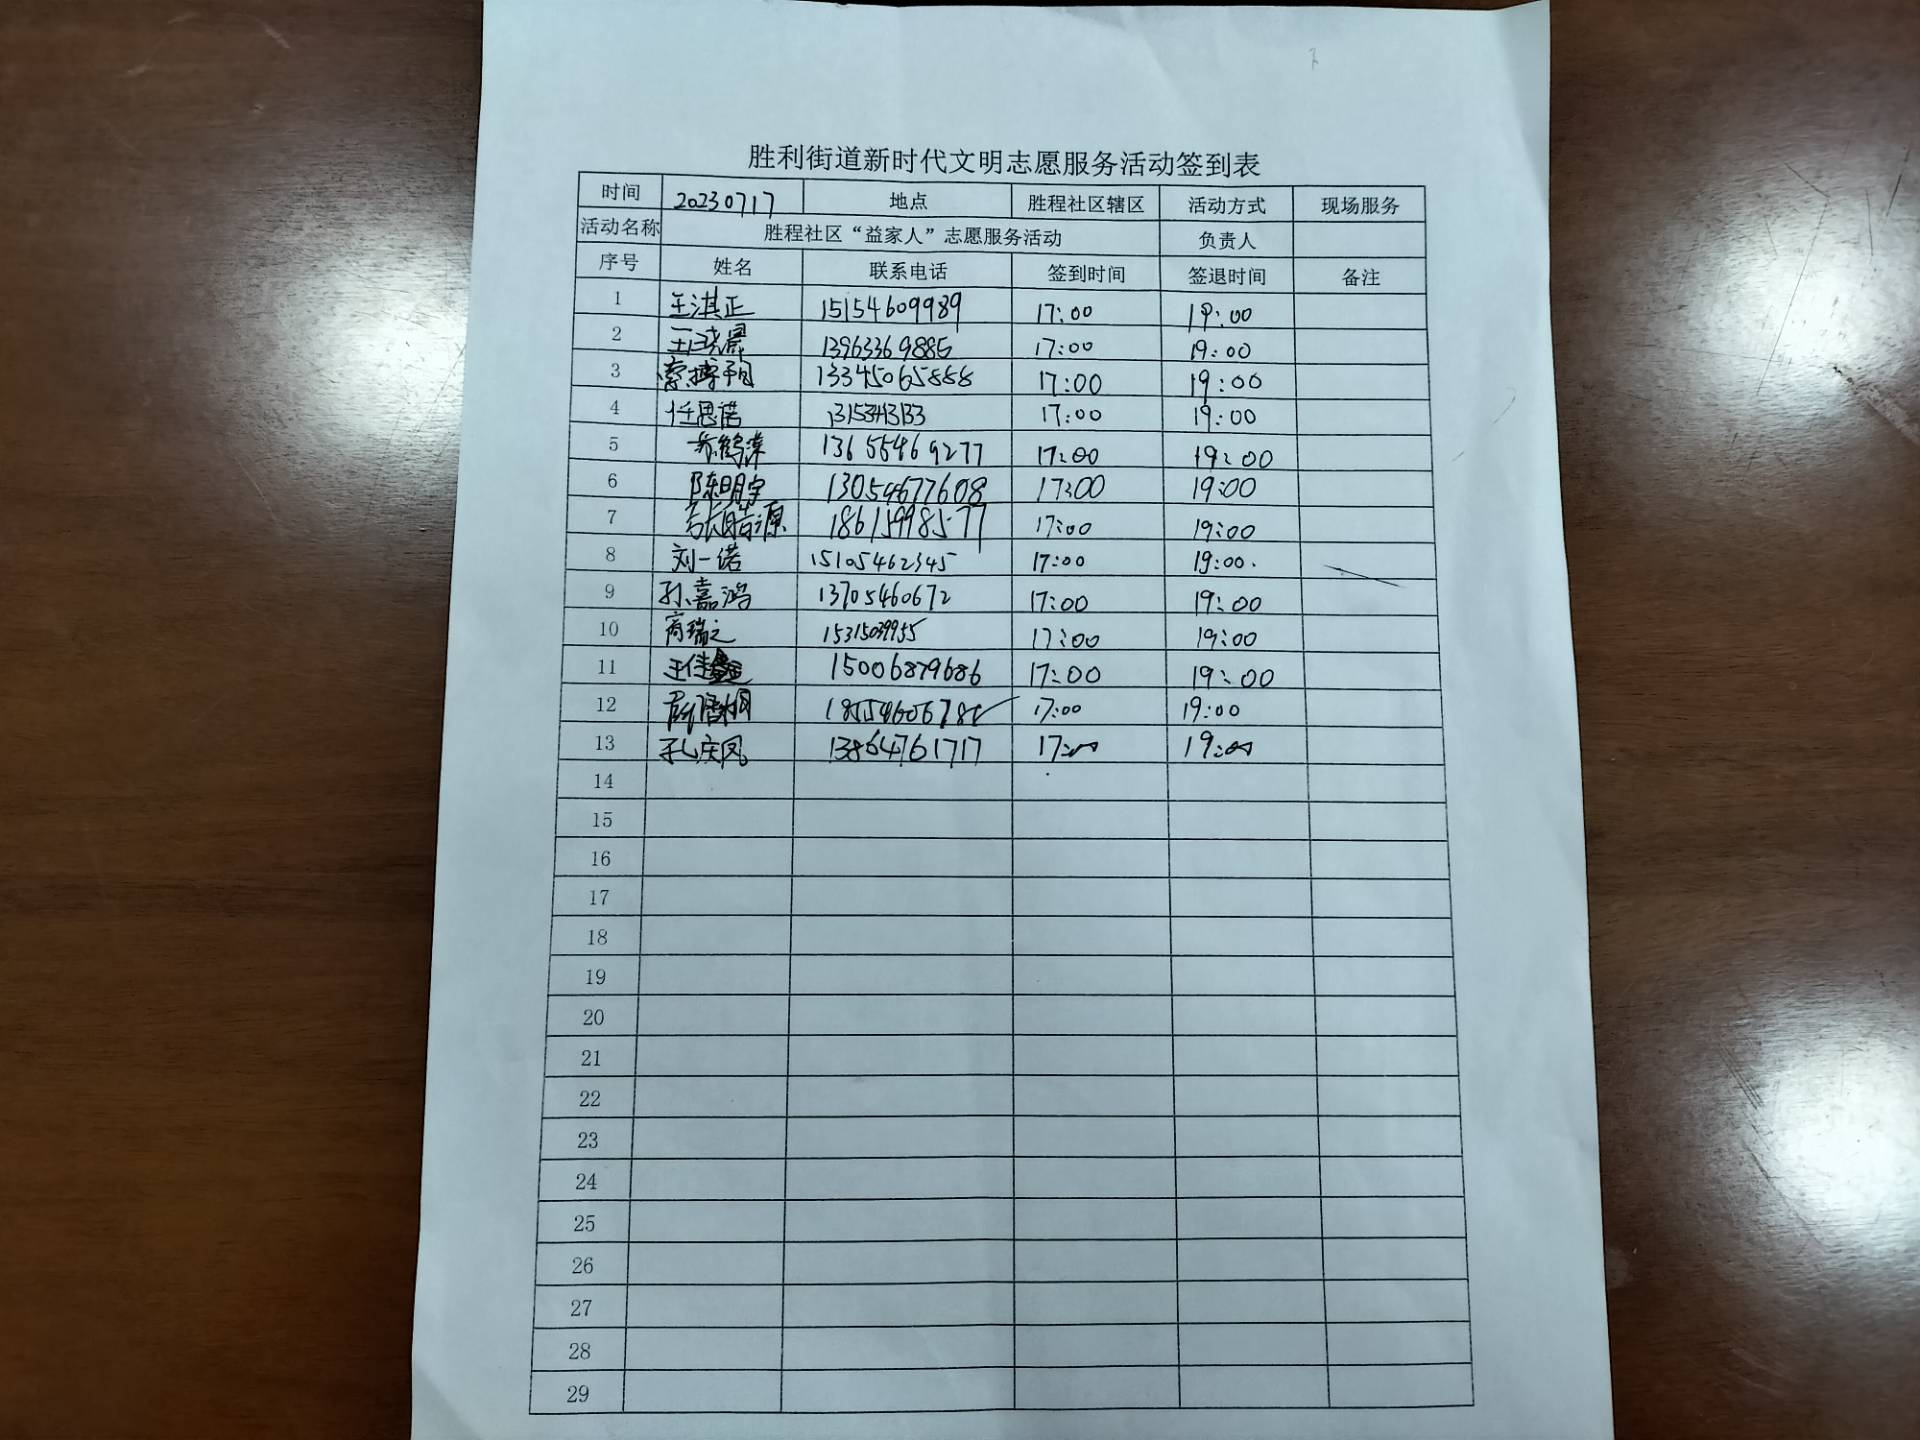 胜利街道新时代文明志愿服务活动签到表
时间 20230717 地点 胜程社区辖区 活动方式 现场服务
活动名称 胜程社区“益家人”志愿服务活动 负责人
序号 姓名 联系电话 签到时间 签退时间 备注
1 王淇正 15154609989 17:00 19:00
2 王 13963369885 17:00 19:00
3 13345065888 17:00 19:00
4 任思诺 17:00 19:00
5 13655469277 17:00 19:00
6 陈明宇 13054677608 17:00 19:00
7 源 18615998577 17:00 19:00
8 刘一诺 15105462345 17:00 19:00.
9 孙嘉鸿 13705460672 17:00 19:00
10 商瑞之 15315039955 17:00 19:00
11 王佳鑫 15006879686 17:00 19:00
12 17:00 19:00
13 孔庆凤 13864761717 17:00 19:00
14
15
16
17
18
19
20
21
22
23
24
25
26
27
28
29